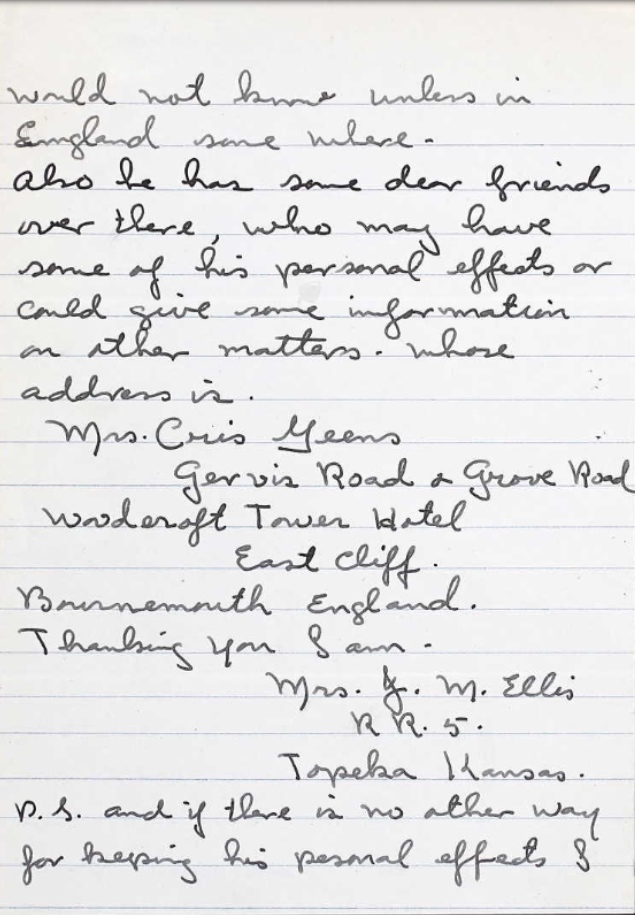 would not know unless in
England some where.
Also he has some dear friends
over there, who may have
some of his personal effects or
could give some information
on other matters. whose
address is.
Mrs. Cris Yeens
Gervis Road & Grove Road
Woodcroft Tower Hotel
East Cliff.
Bournemouth England.
Thanking you I am.
Mrs. J. M. Ellis
R R. 5.
Topeka Kansas.
P.S. and if there is no other way
for keeping his pesonal effects I